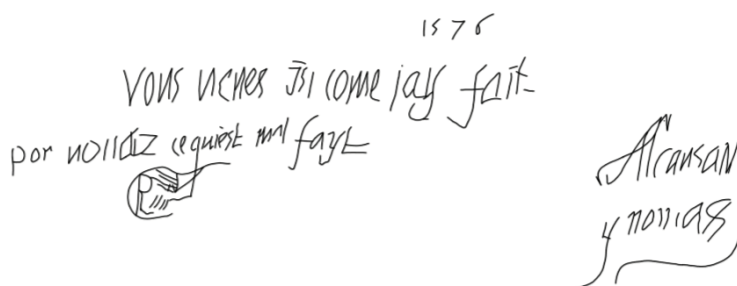 1576
vous venes isi come jay fait
por noll diz ce quiest mal fayt
Alransan
y nomias